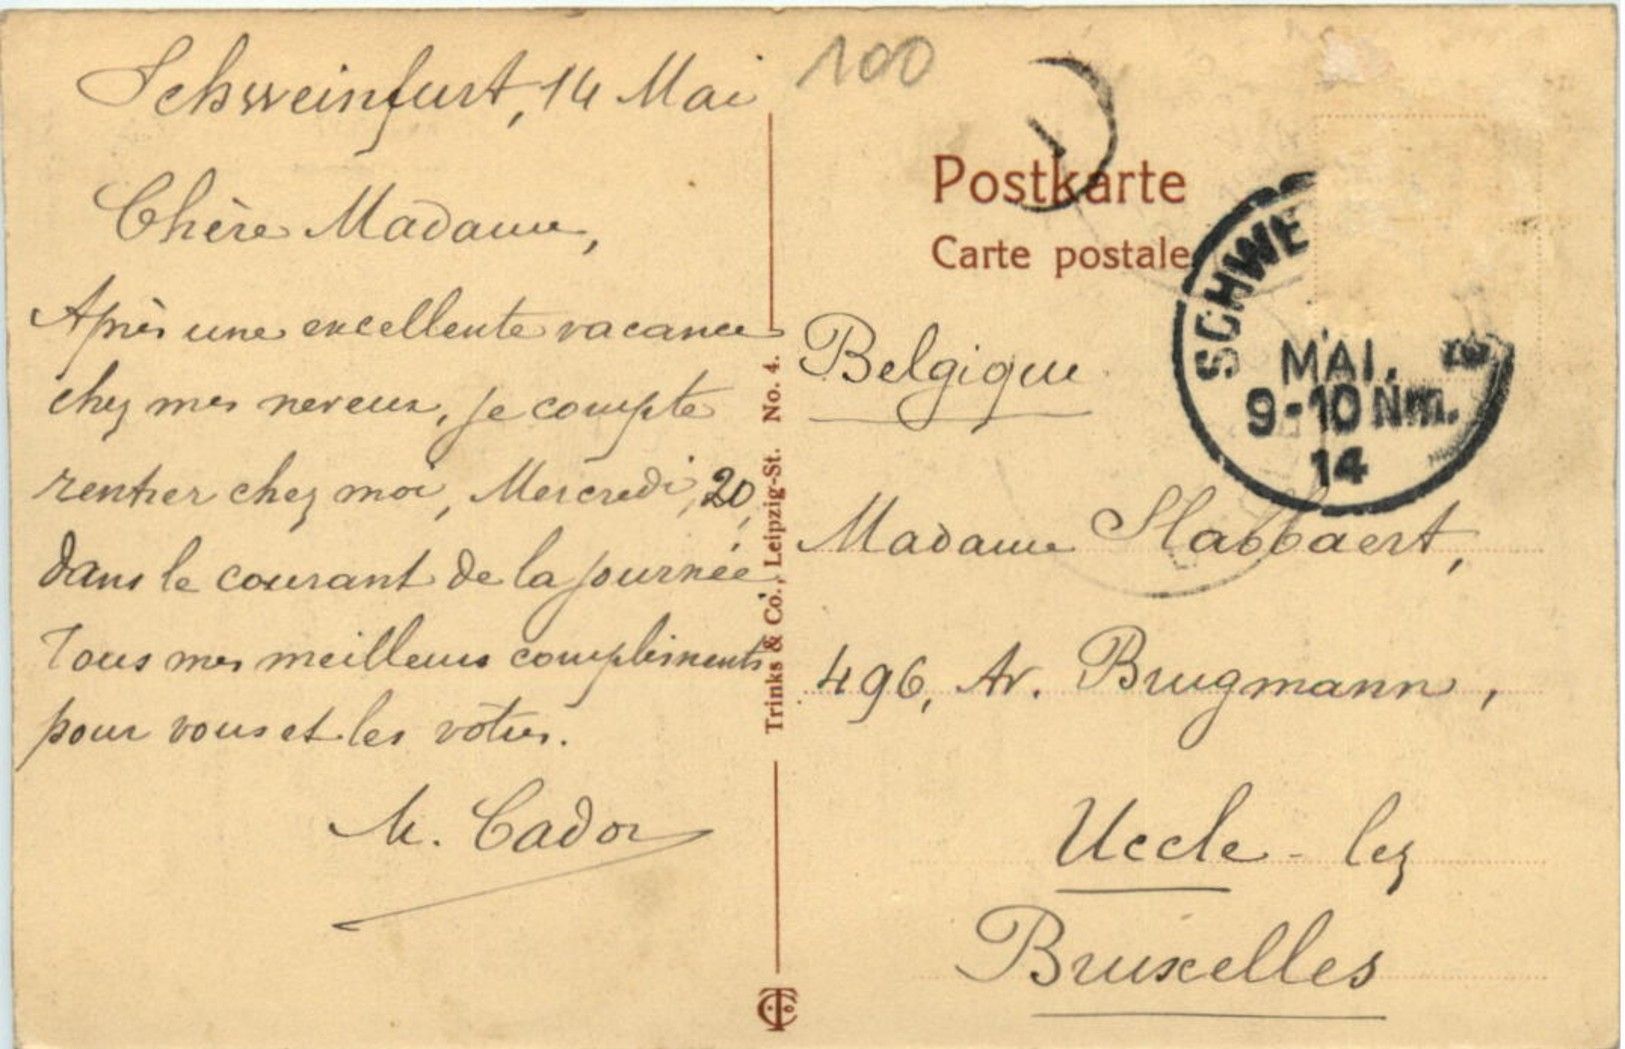 Schweinfurt, 14 Mai
Chère Madame,
Après une excellente vacance
chez mes neveux, je compte
rentrer chez moi, Mercredi, 20,
dans le courant de la journée.
Tous mes meilleurs compliments
pour vous et les vôtres.
M. Cador
Trinks & Co., Leipzig-St. No. 4.
100
1
Postkarte
Carte postale
SCHWE
MAI.
9-10 Nm.
14
Belgique
Madame Slabbaert,
496, Av. Brugmann,
Uccle - lez
Bruxelles